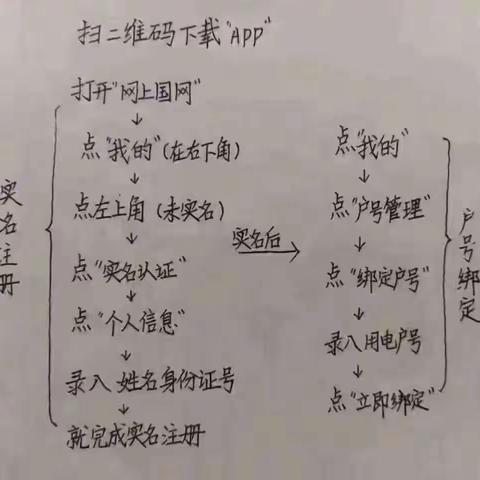 扫二维码下载"APP"
实名注册
打开"网上国网"
↓
点"我的"(在右下角)
↓
点左上角(未实名)
↓
点"实名认证"
↓
点"个人信息"
↓
录入 姓名身份证号
↓
就完成实名注册
实名后
→
点"我的"
↓
点"户号管理"
↓
点"绑定户号"
↓
录入用电户号
↓
点"立即绑定"
户号绑定